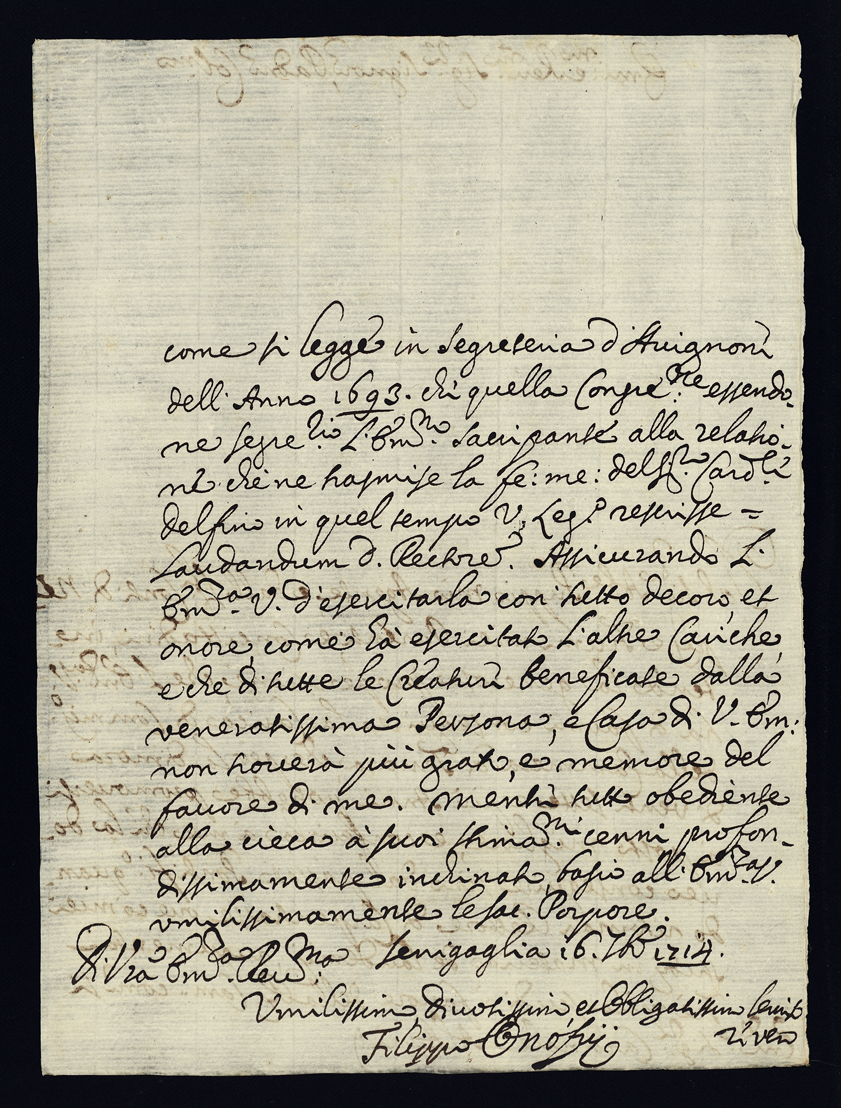 come si legge in Segreteria d'Auignone
dell'Anno 1693. che quella Congre:ne essendo-
ne segre:rio L'Em:mo Sacripante alla relatio-
ne che ne trasmise la fe: me: del Sr. Card:le
delfino in quel tempo V. Leg:o rescrisse =
Laudandum D. Rectore. Assicurando L'
Em:za V. d'esercitarla con tutto decoro, et
onore, come hà esercitato l'altre Cariche,
e che di tutte le Creature beneficate dalla
veneratissima Persona, e Casa di V. Em:
non houerà più grato, e memore del
fauore di me. Mentre tutto obediente
alla cieca à suoi stima:mi cenni profon-
dissimamente inchinato bagio all'Em:za V.
vmilissimamente le Sac. Porpore.
Di Vra Em:za Reu:ma Senigaglia 16. 7bre 1714.
Vmilissimo, diuotissimo, et Obligatissimo Seruito
re vero
Filippo Onofrij